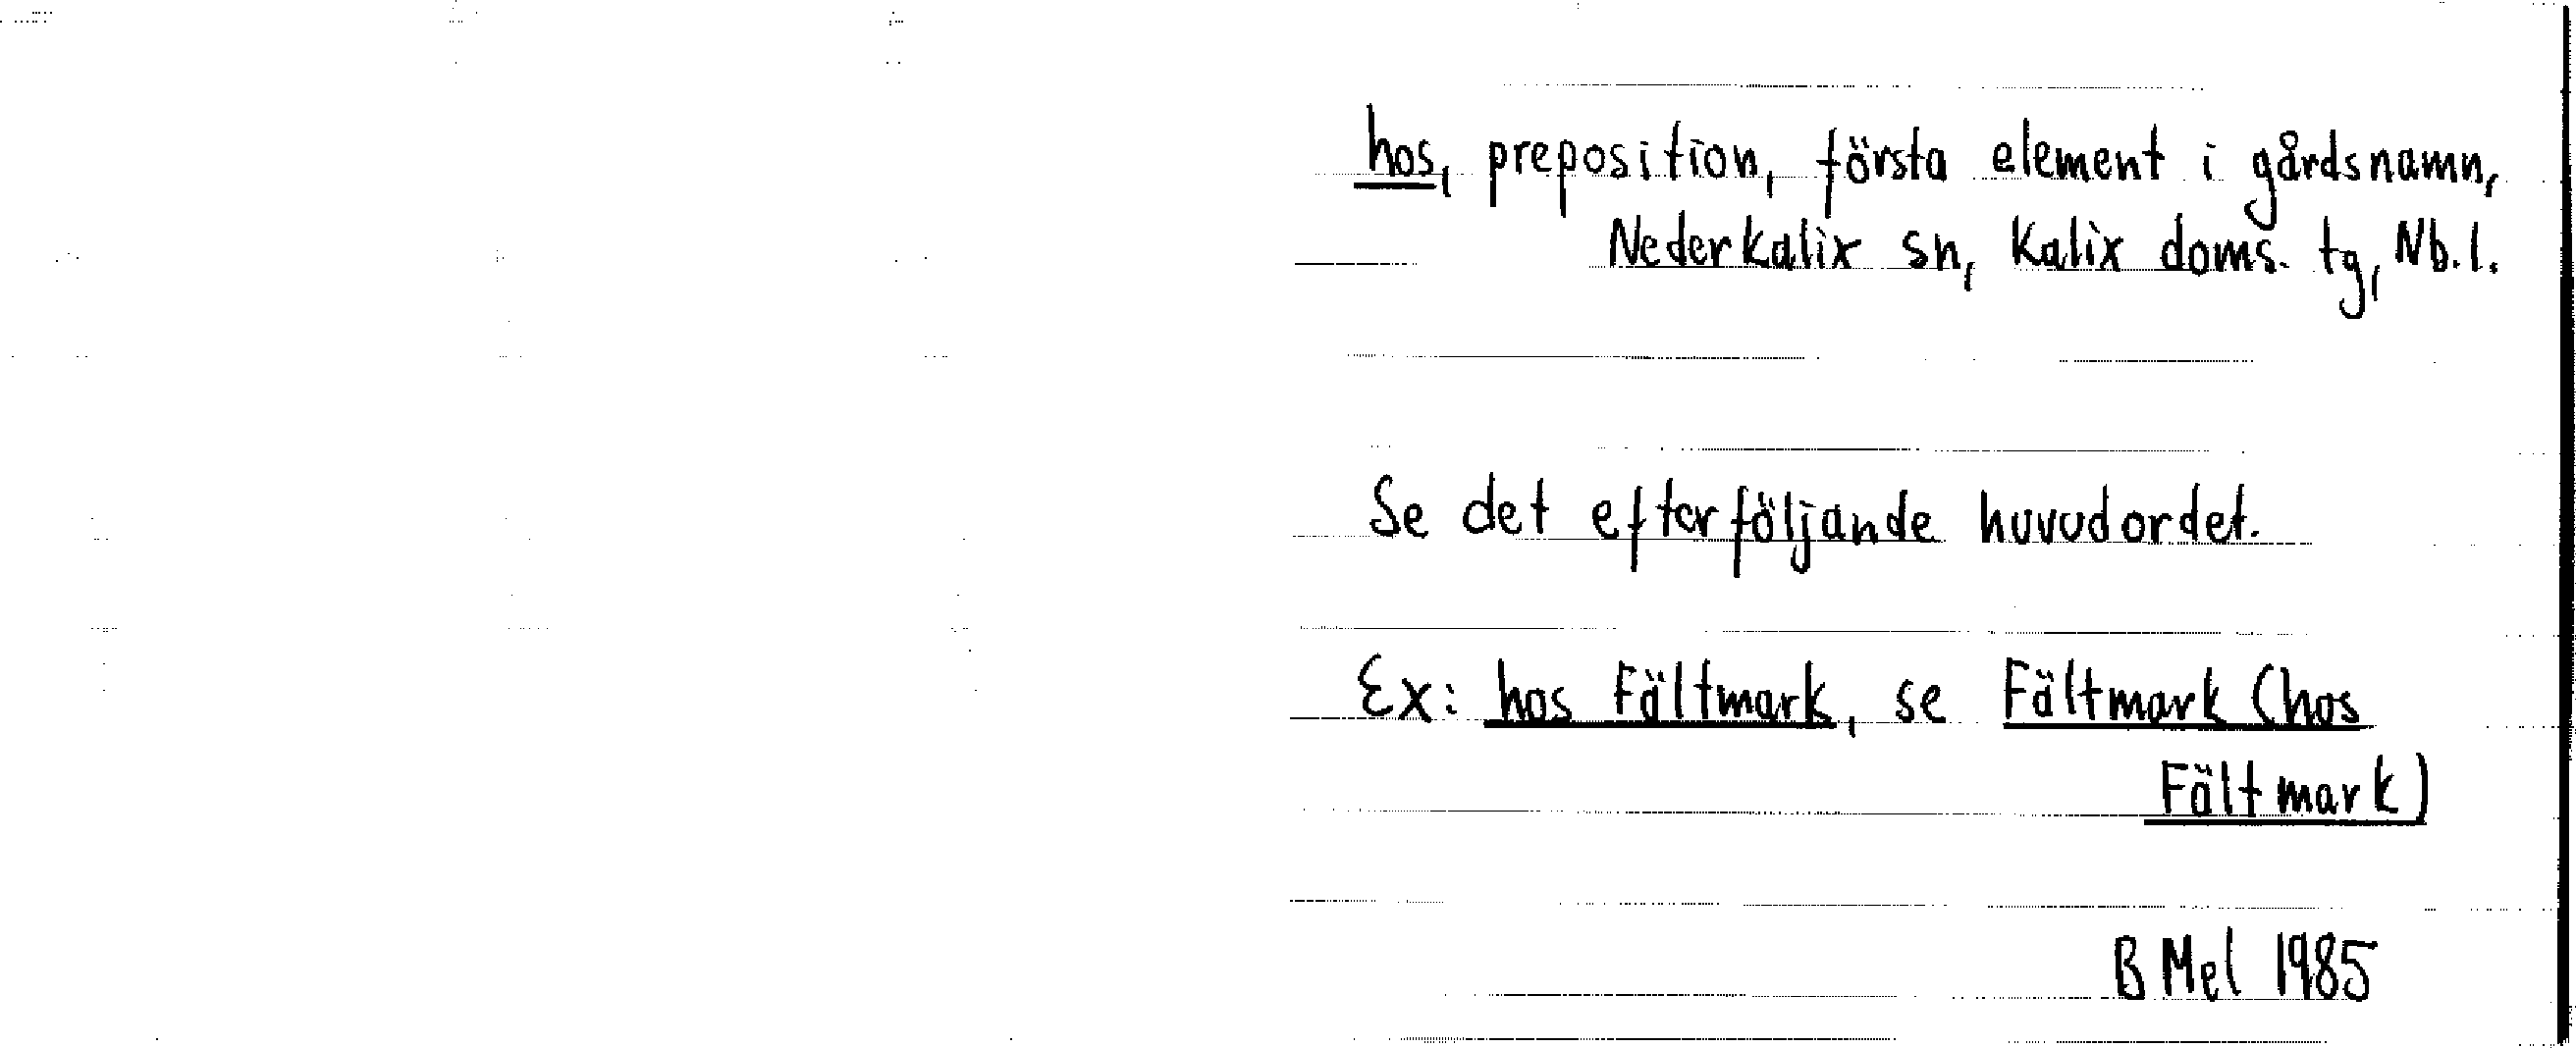 hos, preposition, första element i gårdsnamn,
Nederkalix sn, Kalix doms. tg, Nb.l.
Se det efterföljande huvudordet.
Ex: hos Fältmark, se Fältmark (hos
Fältmark)
B Mel 1985